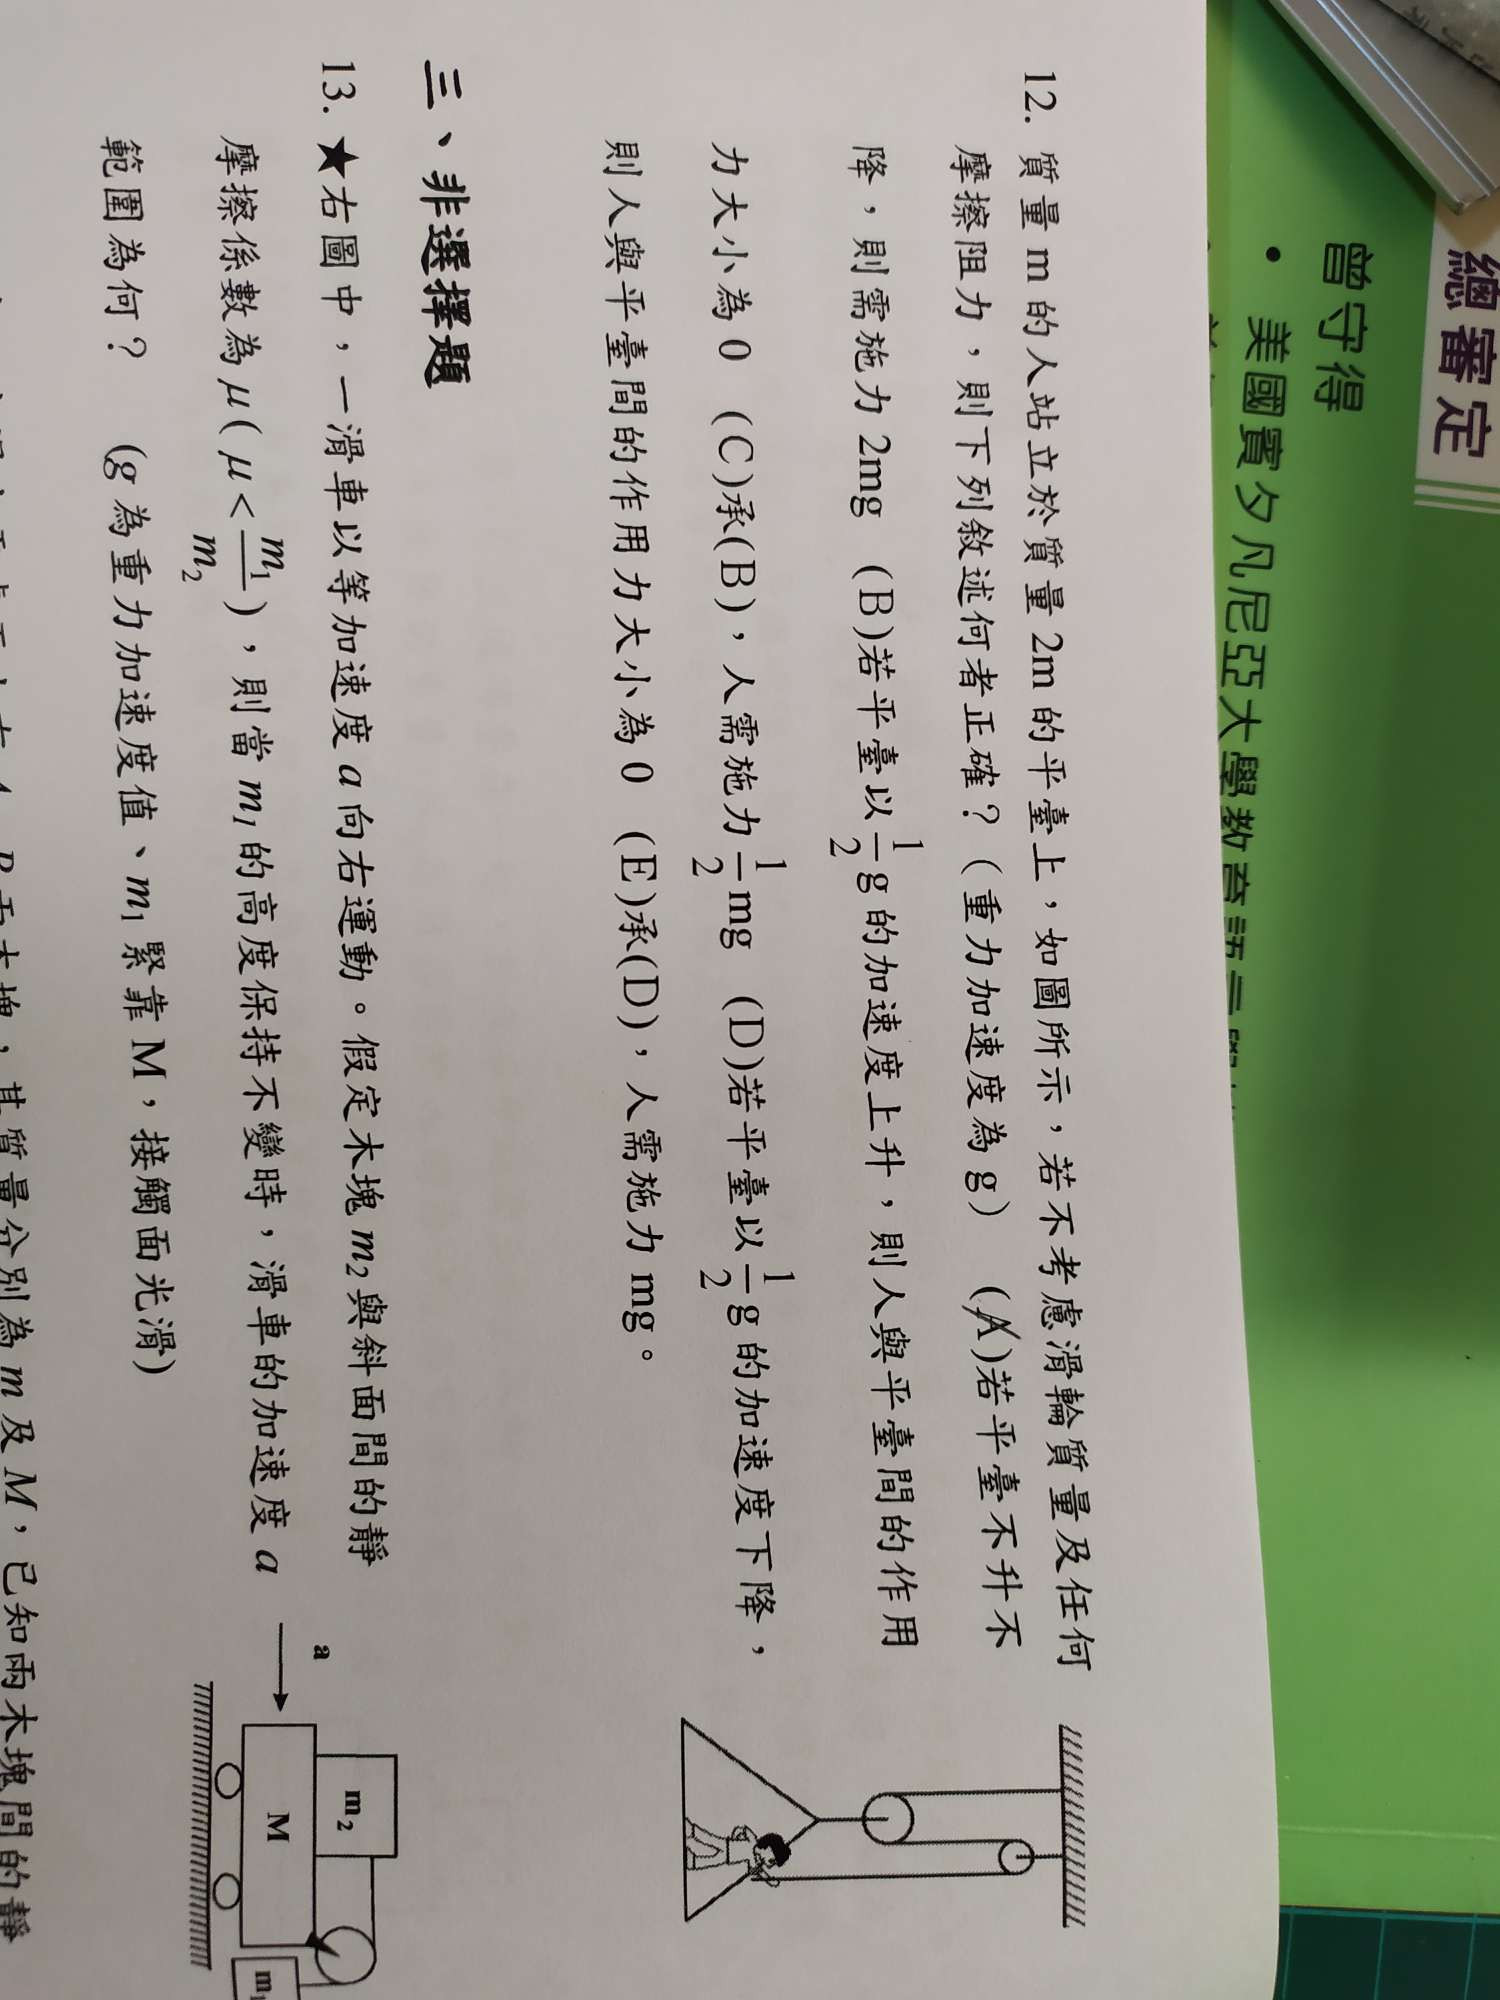 總審定
曾守得
• 美國賓夕凡尼亞大學教育
12. 質量 m 的人站立於質量 2m 的平臺上，如圖所示，若不考慮滑輪質量及任何
摩擦阻力，則下列敘述何者正確？(重力加速度為 g) (A)若平臺不升不
降，則需施力 2mg (B)若平臺以 1/2 g 的加速度上升，則人與平臺間的作用
力大小為 0 (C)承(B)，人需施力 1/2 mg (D)若平臺以 1/2 g 的加速度下降，
則人與平臺間的作用力大小為 0 (E)承(D)，人需施力 mg。
三、非選擇題
13. ★右圖中，一滑車以等加速度 a 向右運動。假定木塊 m₂ 與斜面間的靜
摩擦係數為 μ(μ < m₁/m₂)，則當 m₁ 的高度保持不變時，滑車的加速度 a
範圍為何？ (g 為重力加速度值、m₁ 緊靠 M，接觸面光滑)
a
m₂
M
m₁
兩木塊，其質量分別為 m 及 M，已知兩木塊間的靜